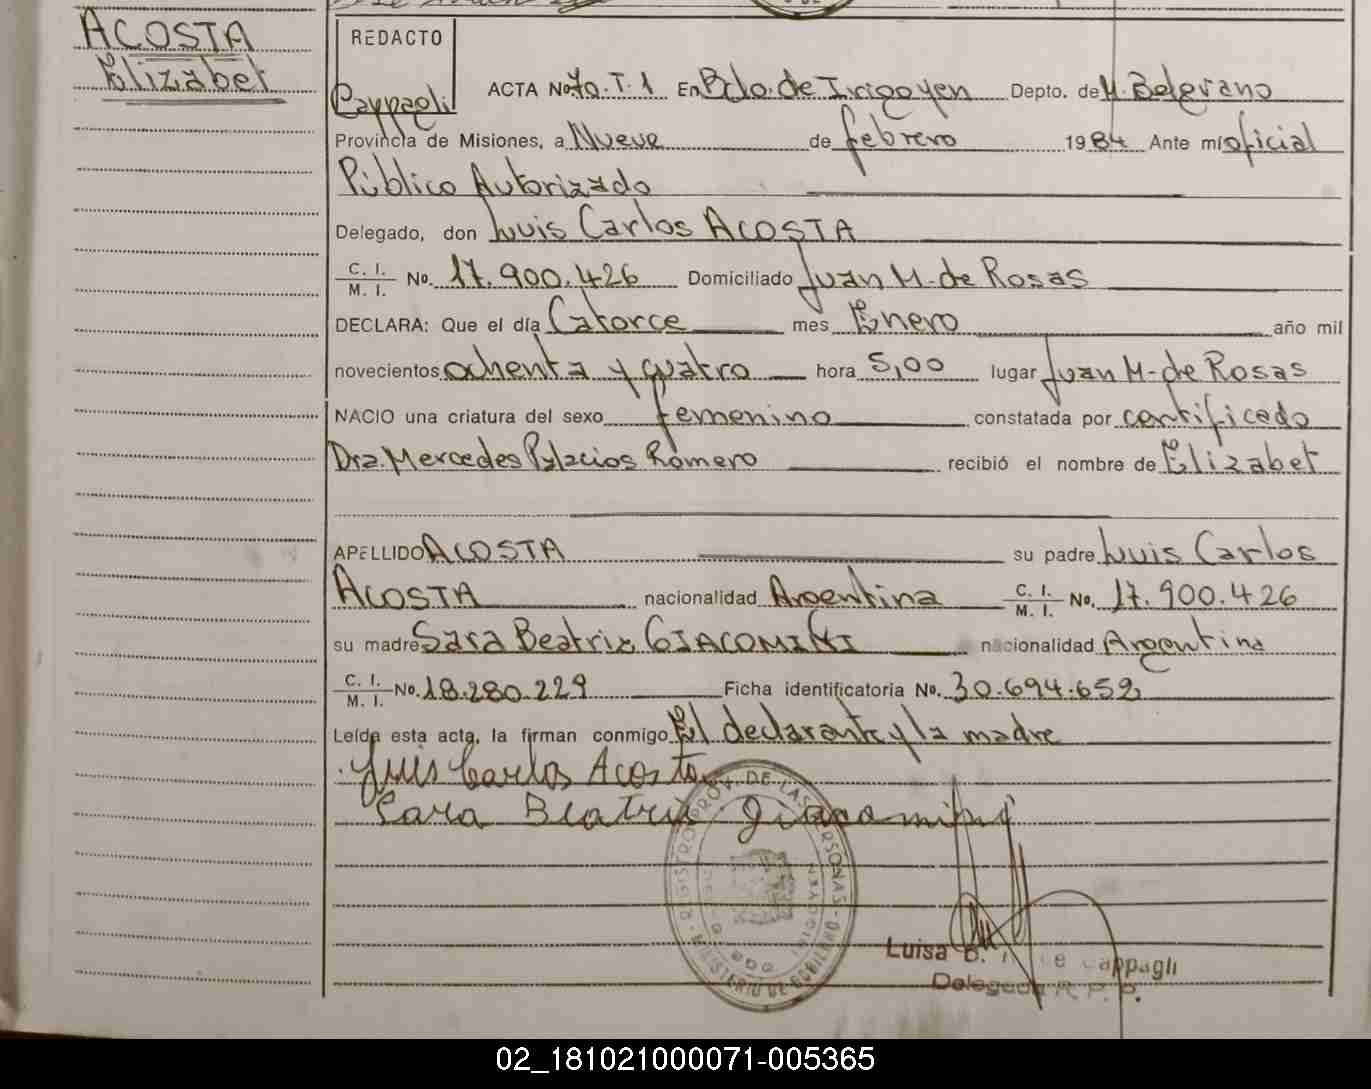 ACOSTA
Elizabet
REDACTO
Cappagli
ACTA No 70.T.1 En Bdo. de Irigoyen Depto. de M. Belgrano
Provincia de Misiones, a Nueve de febrero 1984 Ante mí oficial
Público Autorizado
Delegado, don Luis Carlos ACOSTA
C. I.
M. I. No. 17.900.426 Domiciliado Juan M. de Rosas
DECLARA: Que el día Catorce mes Enero año mil
novecientos ochenta y cuatro hora 5,00 lugar Juan M. de Rosas
NACIO una criatura del sexo femenino constatada por certificado
Dra. Mercedes Palacios Romero recibió el nombre de Elizabet
APELLIDO ACOSTA su padre Luis Carlos
ACOSTA nacionalidad Argentina C. I.
M. I. No. 17.900.426
su madre Sara Beatriz GIACOMINI nacionalidad Argentina
C. I.
M. I. No. 18.280.229 Ficha identificatoria No. 30.694.652
Leída esta acta, la firman conmigo El declarante y la madre
Luis Carlos Acosta
Sara Beatriz Giacomini
REGISTRO PROV. DE LAS PERSONAS - MINISTERIO DE GOBIERNO
Luisa B. de Cappagli
Delegada R. P. P.
02_181021000071-005365